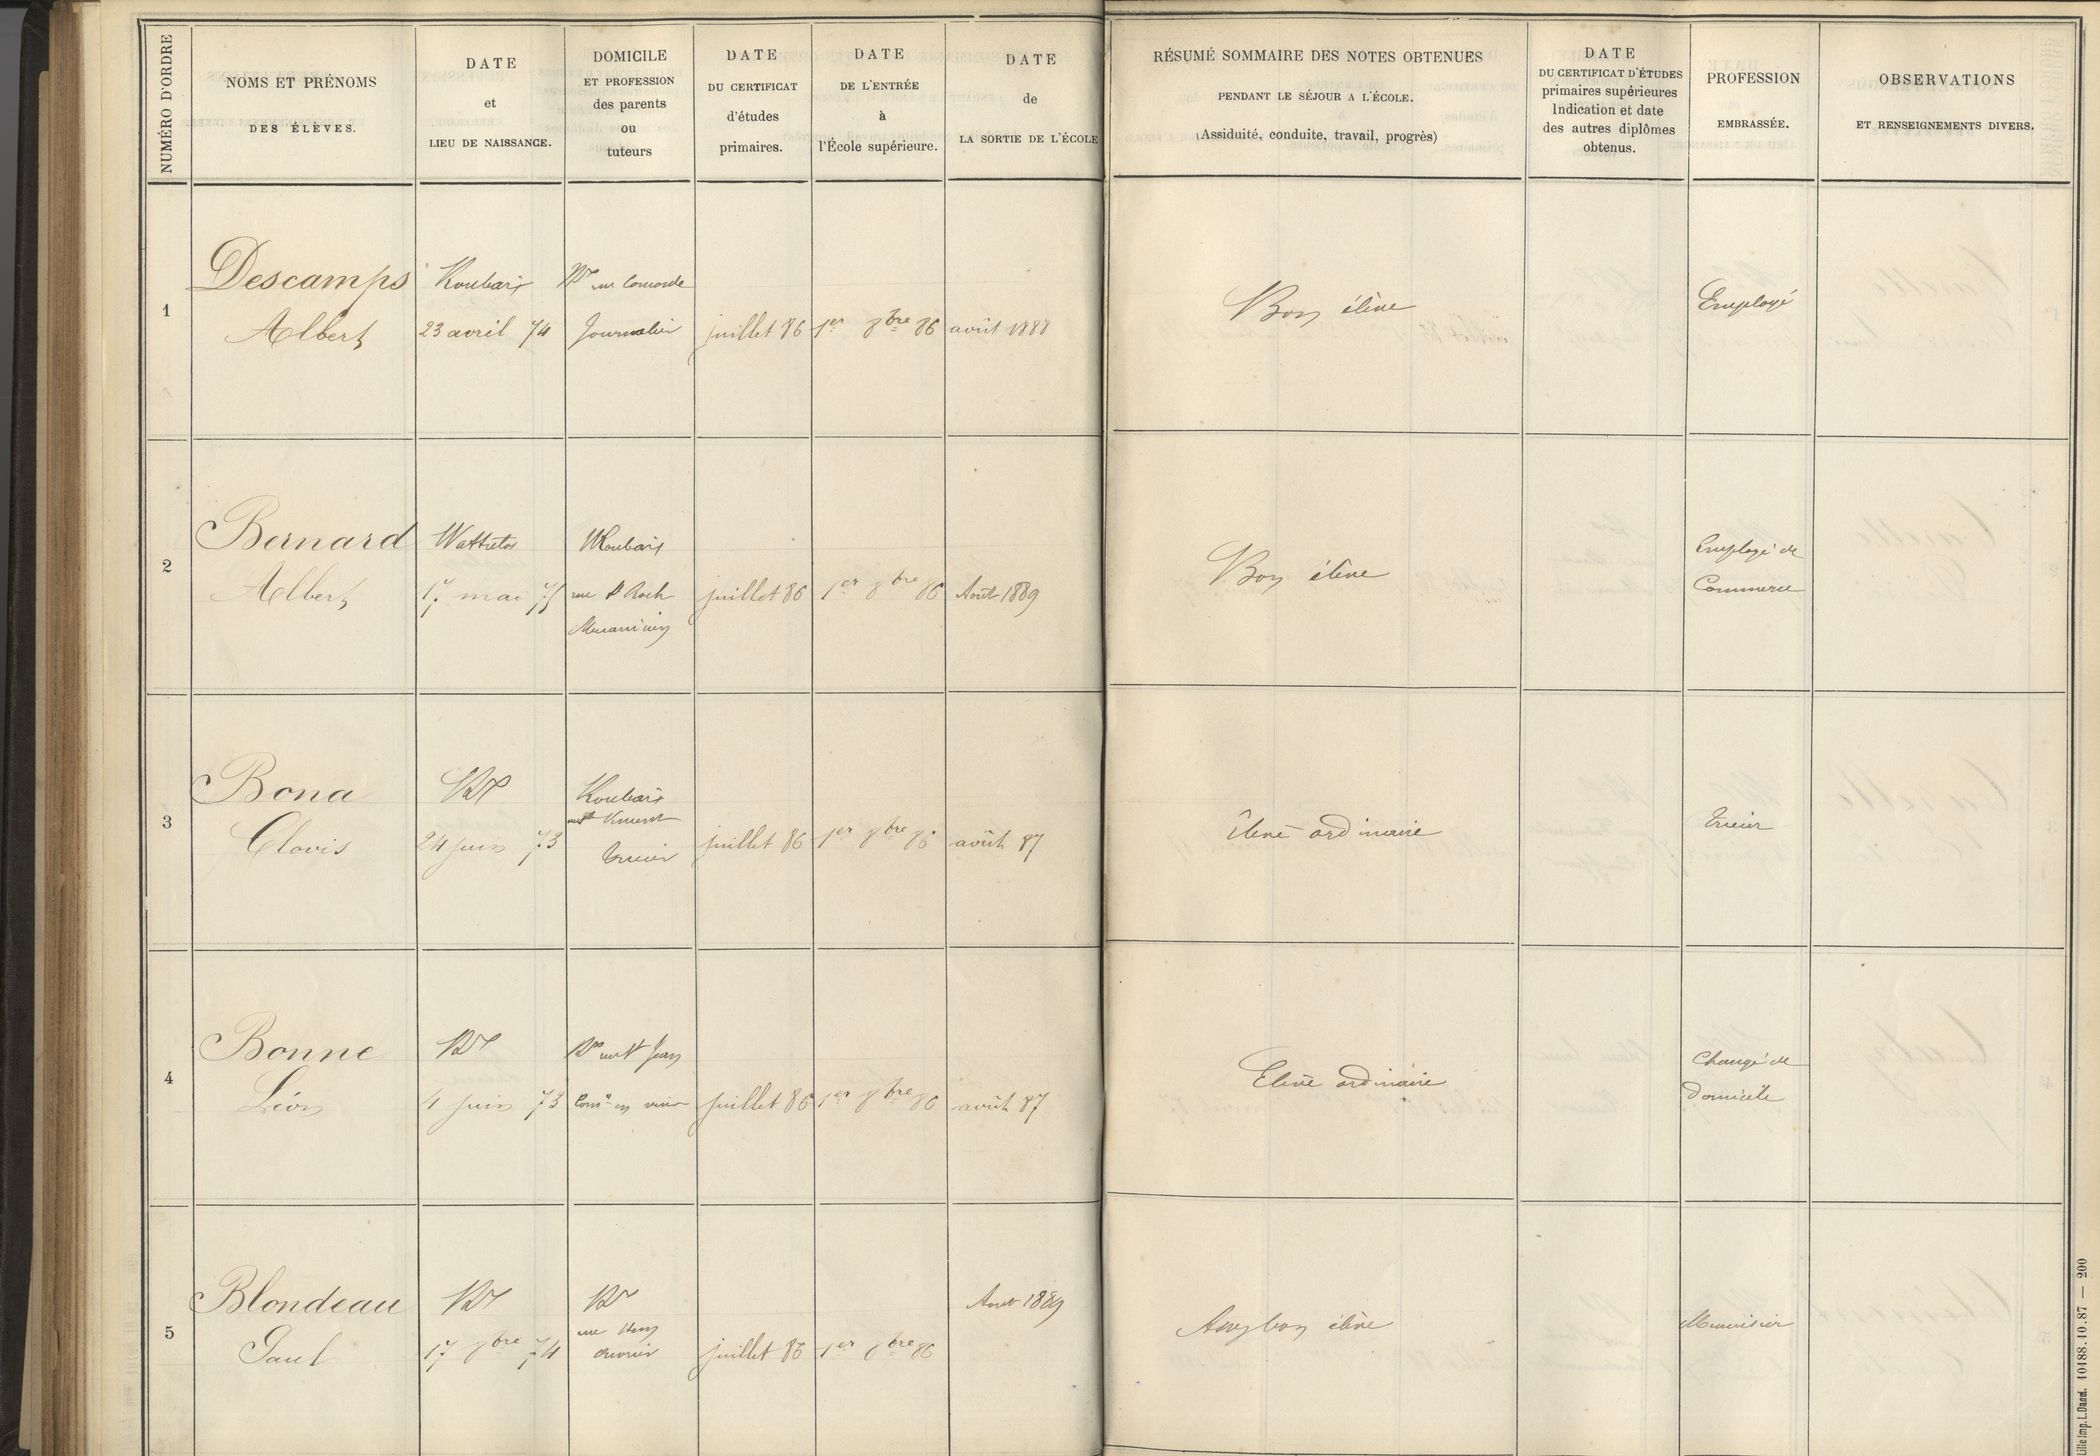 NUMÉRO D'ORDRE
NOMS ET PRÉNOMS
DES ÉLÈVES.
DATE
et
LIEU DE NAISSANCE.
DOMICILE
ET PROFESSION
des parents
ou
tuteurs
DATE
DU CERTIFICAT
d'études
primaires.
DATE
DE L'ENTRÉE
à
l'École supérieure.
DATE
de
LA SORTIE DE L'ÉCOLE
RÉSUMÉ SOMMAIRE DES NOTES OBTENUES
PENDANT LE SÉJOUR A L'ÉCOLE.
(Assiduité, conduite, travail, progrès)
DATE
DU CERTIFICAT D'ÉTUDES
primaires supérieures
Indication et date
des autres diplômes
obtenus.
PROFESSION
EMBRASSÉE.
OBSERVATIONS
ET RENSEIGNEMENTS DIVERS.
1
Descamps
Albert
Roubaix
23 avril 74
Rx rue Concorde
Journalier
juillet 86
1er 8bre 86
août 1888
Bon élève
Employé
2
Bernard
Albert
Wattrelos
17 mai 75
Roubaix
rue St Roch
Mécanicien
juillet 86
1er 8bre 86
Août 1889
Bon élève
Employé de
Commerce
3
Bona
Clovis
Rx
24 juin 73
Roubaix
Vincent
Trieur
juillet 86
1er 8bre 86
août 87
Élève ordinaire
Trieur
4
Bonne
Léon
Rx
4 juin 73
Rx rue St Jean
en vins
juillet 86
1er 8bre 86
août 87
Elève ordinaire
Changé de
domicile
5
Blondeau
Paul
Rx
17 8bre 74
Rx
rue
ouvrier
juillet 86
1er 8bre 86
Aout 1889
Assez bon élève
Menuisier
Lille Imp. L. Danel. 10188.10.87 — 200